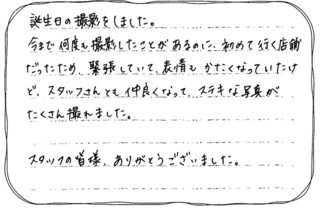 誕生日の撮影をしました。
今まで何度も撮影したことがあるのに、初めて行く店舗
だったため、緊張していて、表情もかたくなっていたけ
ど、スタッフさんとも仲良くなって、ステキな写真が
たくさん撮れました。
スタッフの皆様、ありがとうございました。